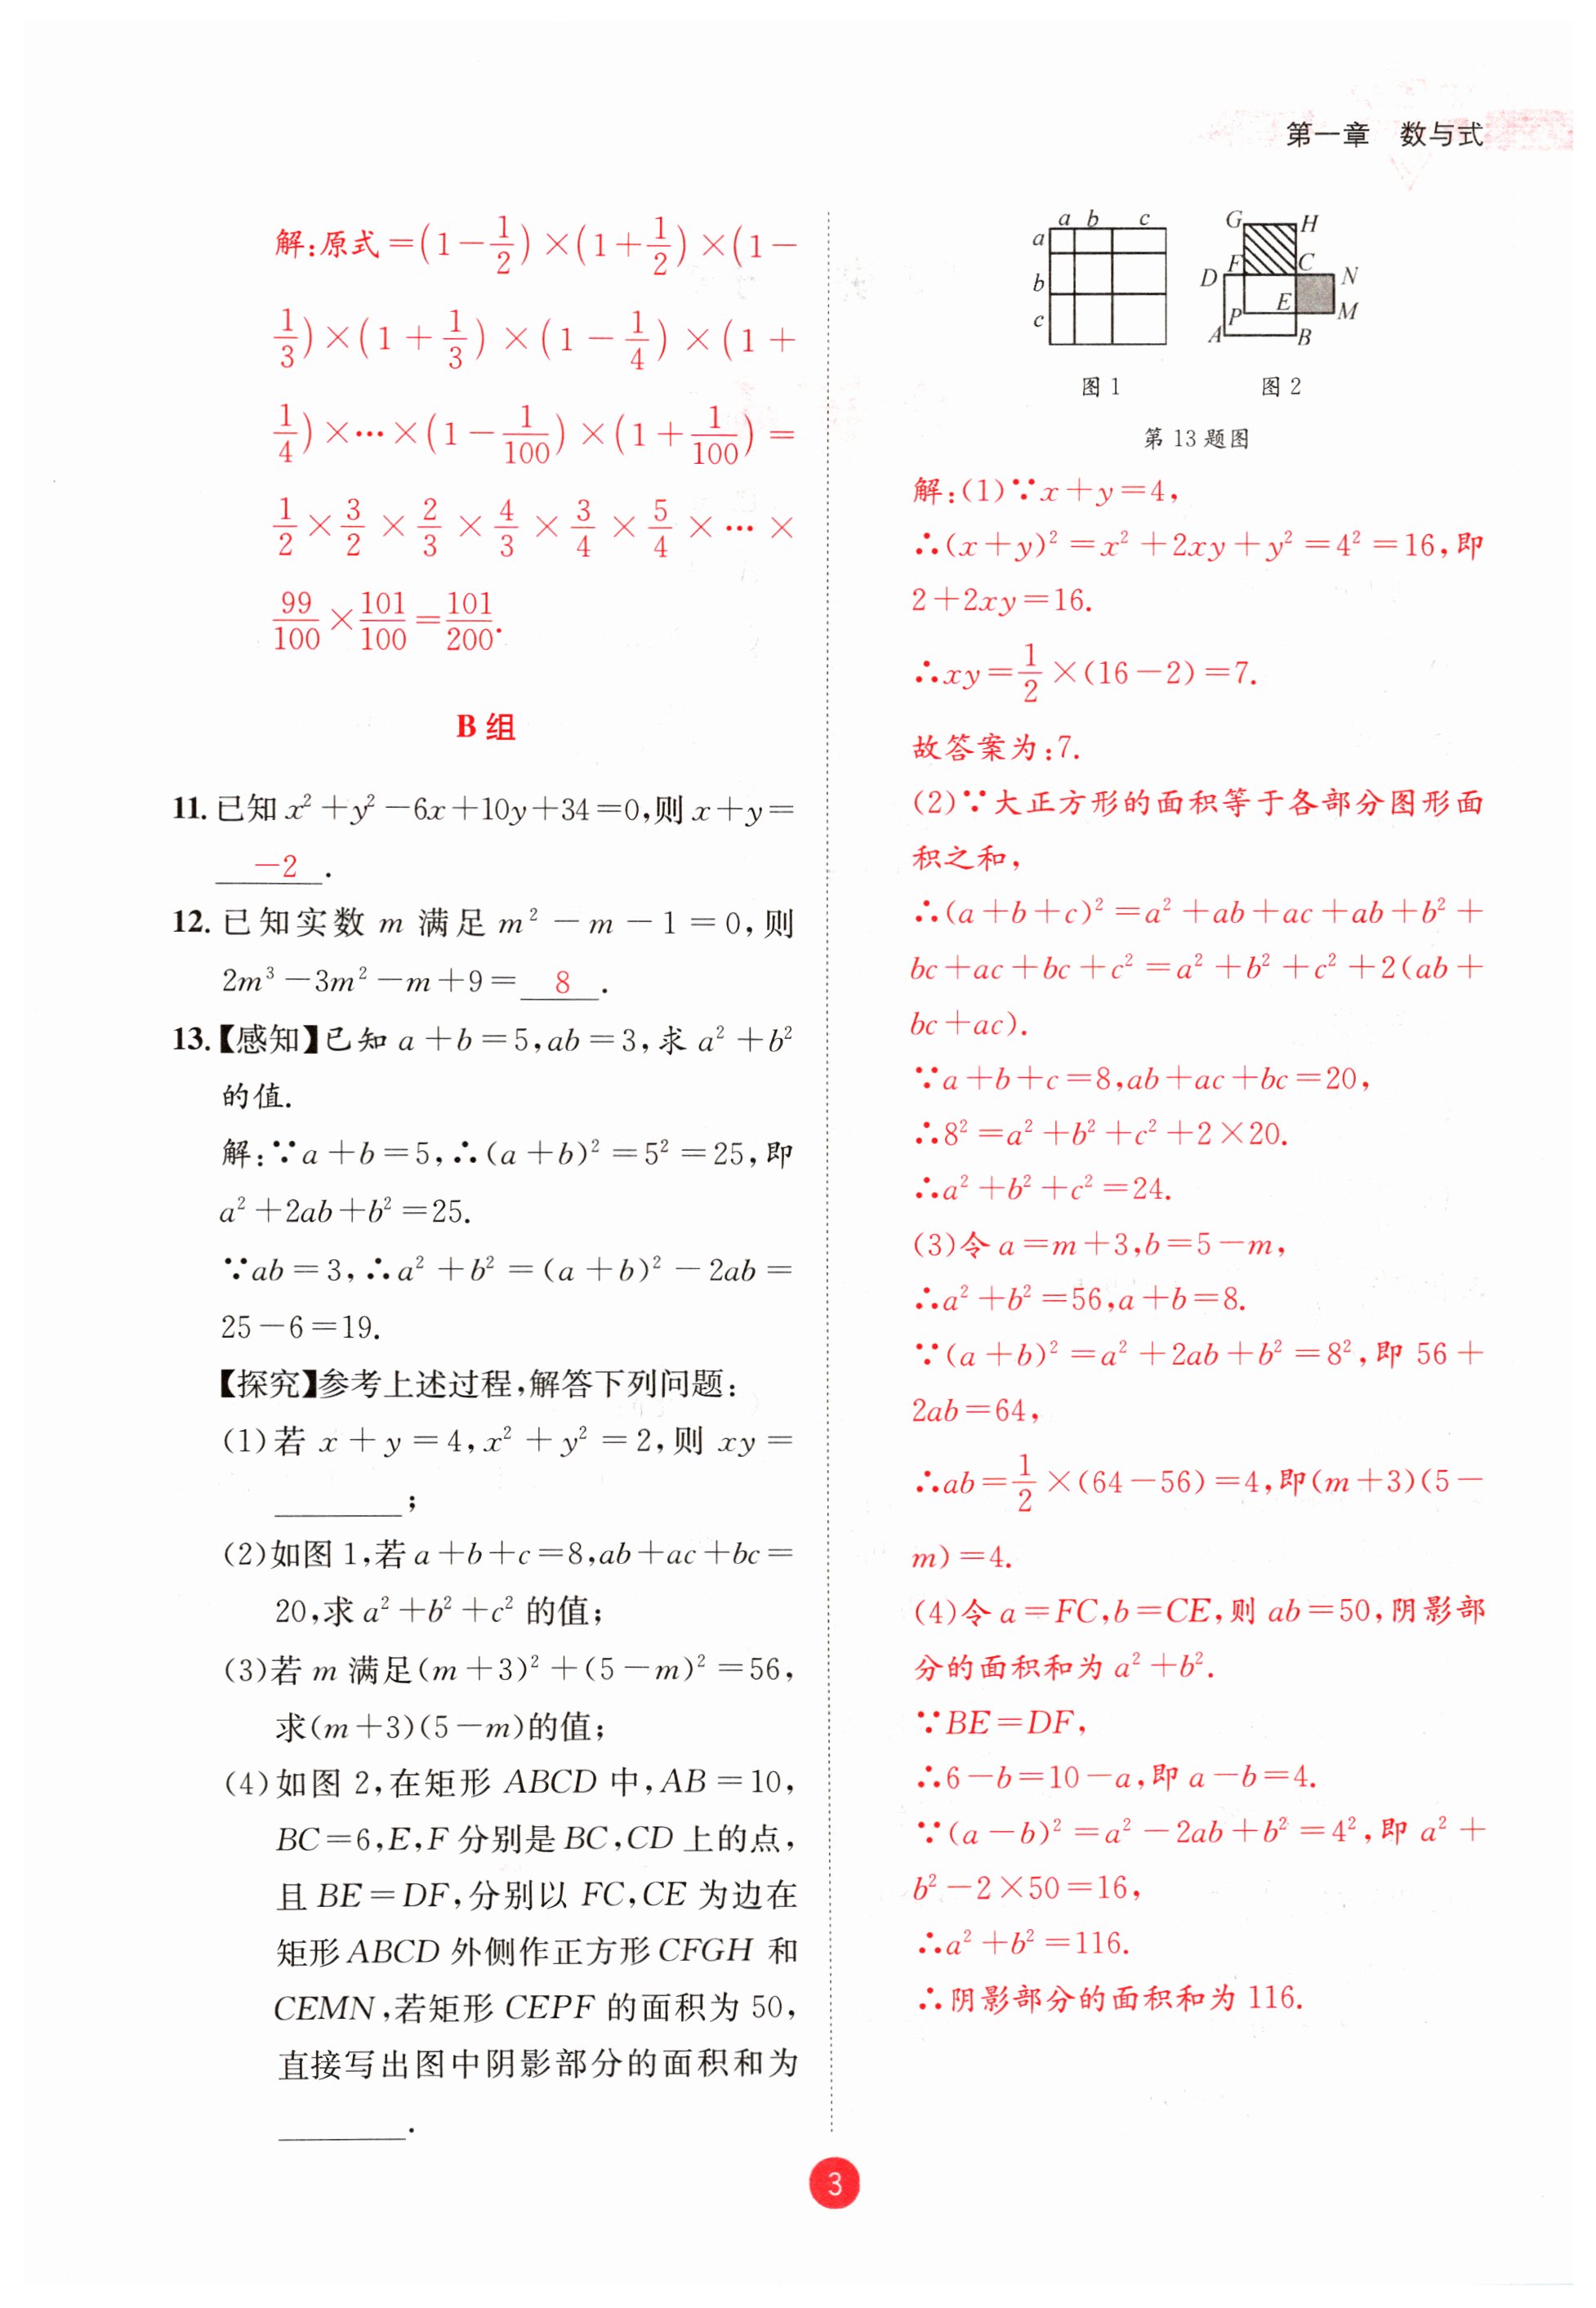 第一章 数与式
解:原式=(1-1/2)×(1+1/2)×(1-
1/3)×(1+1/3)×(1-1/4)×(1+
1/4)×…×(1-1/100)×(1+1/100)=
1/2×3/2×2/3×4/3×3/4×5/4×…×
99/100×101/100=101/200.
B组
11.已知x²+y²-6x+10y+34=0,则x+y=
-2.
12.已知实数m满足m²-m-1=0,则
2m³-3m²-m+9=8.
13.【感知】已知a+b=5,ab=3,求a²+b²
的值.
解:∵a+b=5,∴(a+b)²=5²=25,即
a²+2ab+b²=25.
∵ab=3,∴a²+b²=(a+b)²-2ab=
25-6=19.
【探究】参考上述过程,解答下列问题:
(1)若x+y=4,x²+y²=2,则xy=
________;
(2)如图1,若a+b+c=8,ab+ac+bc=
20,求a²+b²+c²的值;
(3)若m满足(m+3)²+(5-m)²=56,
求(m+3)(5-m)的值;
(4)如图2,在矩形ABCD中,AB=10,
BC=6,E,F分别是BC,CD上的点,
且BE=DF,分别以FC,CE为边在
矩形ABCD外侧作正方形CFGH和
CEMN,若矩形CEPF的面积为50,
直接写出图中阴影部分的面积和为
________.
a b c
a
b
c
图1
G H
F C
D N
E
P M
A B
图2
第13题图
解:(1)∵x+y=4,
∴(x+y)²=x²+2xy+y²=4²=16,即
2+2xy=16.
∴xy=1/2×(16-2)=7.
故答案为:7.
(2)∵大正方形的面积等于各部分图形面
积之和,
∴(a+b+c)²=a²+ab+ac+ab+b²+
bc+ac+bc+c²=a²+b²+c²+2(ab+
bc+ac).
∵a+b+c=8,ab+ac+bc=20,
∴8²=a²+b²+c²+2×20.
∴a²+b²+c²=24.
(3)令a=m+3,b=5-m,
∴a²+b²=56,a+b=8.
∵(a+b)²=a²+2ab+b²=8²,即56+
2ab=64,
∴ab=1/2×(64-56)=4,即(m+3)(5-
m)=4.
(4)令a=FC,b=CE,则ab=50,阴影部
分的面积和为a²+b².
∵BE=DF,
∴6-b=10-a,即a-b=4.
∵(a-b)²=a²-2ab+b²=4²,即a²+
b²-2×50=16,
∴a²+b²=116.
∴阴影部分的面积和为116.
3